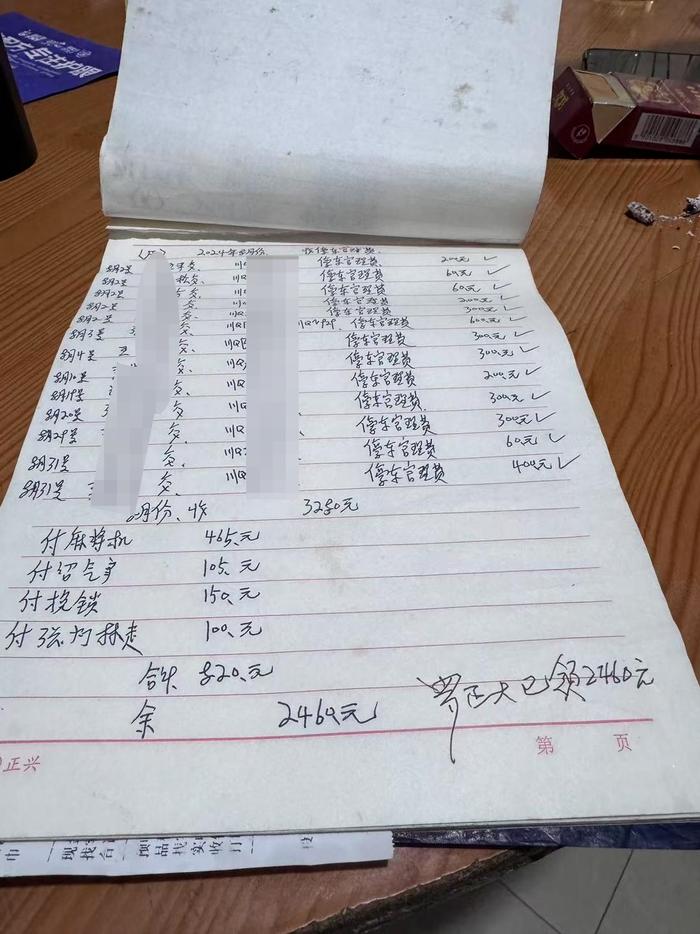 2024年8月份 收停车管理费
8月2号 交. 川Q 停车管理费 200元 ✓
8月2号 交. 川Q 停车管理费 60元 ✓
8月2号 交. 川Q 停车管理费 60元 ✓
8月2号 交. 川Q 停车管理费 200元 ✓
8月2号 交. 川Q 停车管理费 300元 ✓
8月3号 交. 川Q 停车管理费 600元 ✓
8月4号 交. 川Q 停车管理费 300元 ✓
8月10号 交. 川Q 停车管理费 300元 ✓
8月19号 交. 川Q 停车管理费 200元 ✓
8月20号 交. 川Q 停车管理费 300元 ✓
8月29号 交. 川Q 停车管理费 300元 ✓
8月31号 交. 川Q 停车管理费 60元 ✓
8月31号 交. 川Q 停车管理费 400元 ✓
8月份. 收 3280元
付麻将机 465.元
付 105.元
付换锁 150.元
付 100.元
合计 820.元
余 2460元
罗正大已领2460元
第 页
正兴